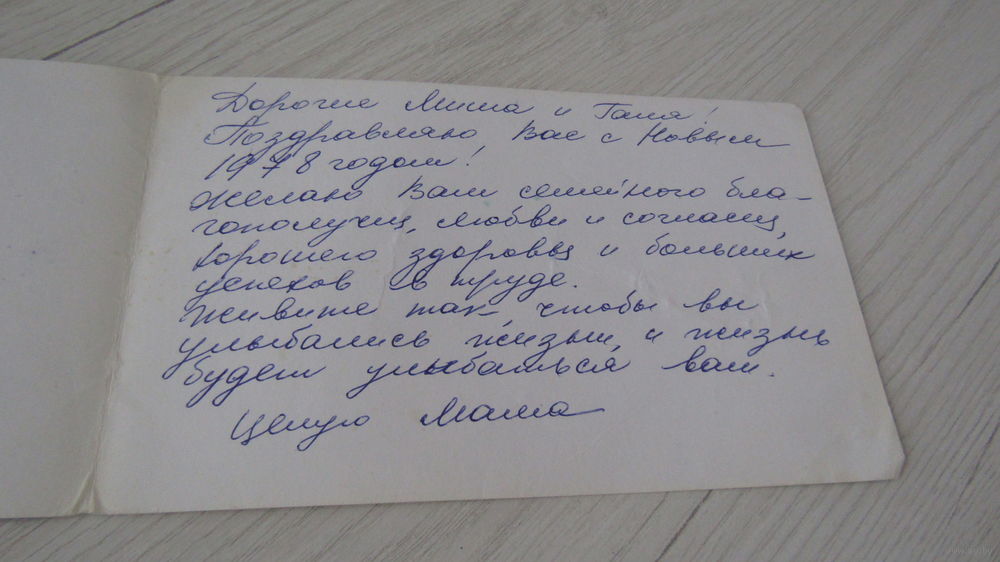 Дорогие Миша и Галя!
Поздравляю Вас с Новым
1978 годом!
Желаю Вам семейного бла-
гополучия, любви и согласия,
хорошего здоровья и больших
успехов в труде.
Живите так чтобы вы
улыбались жизни, и жизнь
будет улыбаться вам.
Целую Мама